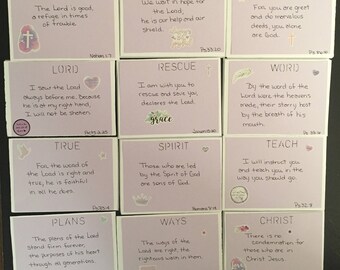 The Lord is good,
a refuge in times
of trouble.
Nahum 1:7
We wait in hope for
the Lord;
he is our help and our
shield.
Ps. 33:20
For, you are great
and do marvelous
deeds, you alone
are God.
LORD
I saw the Lord
always before me. Because
he is at my right hand,
I will not be shaken.
RESCUE
I am with you to
rescue and save you,
declares the Lord.
grace
WORD
By the word of the
Lord were the heavens
made, their starry host
by the breath of his
mouth.
TRUE
For the word of
the Lord is right and
true; he is faithful
in all he does.
SPIRIT
Those who are led
by the Spirit of God
are sons of God.
Romans 8:14
TEACH
I will instruct you
and teach you in the
way you should go.
Ps. 32:8
PLANS
The plans of the Lord
stand firm forever,
the purposes of his heart
through all generations.
WAYS
The ways of the
Lord are right, the
righteous walk in them.
CHRIST
There is no
condemnation for
those who are in
Christ Jesus.